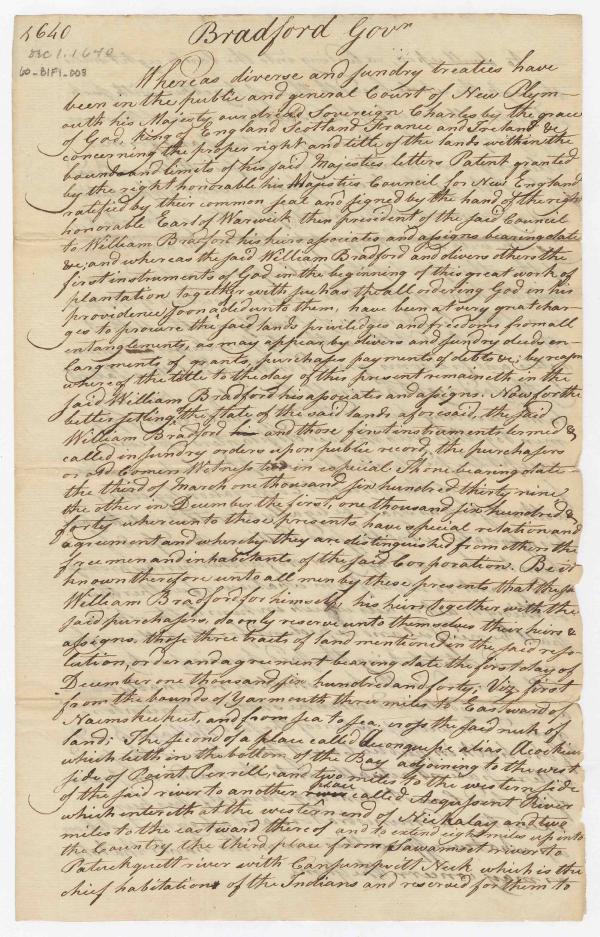 1640
Bradford Govr
Dec 1. 1640
60-B1F1-003
Whereas diverse and sundry treaties have
been in the public and general Court of New Plym-
outh his Majesty our dread Sovereign Charles by the grace
of God, King of England Scotland France and Ireland &c
concerning the proper right and title of the lands within the
bounds and limits of his said Majesties letters Patent granted
by the right honorable his Majesties Council for New England
ratified by their common seal and signed by the hand of the right
honorable Earl of Warwick then president of the said Council
to William Bradford his heirs associates and assigns bearing date
&c; and whereas the said William Bradford and divers others the
first instruments of God in the beginning of this great work of
plantation together with such as the all ordering God in his
providence soon added unto them, have been at very great char-
ges to procure the said lands priviledges and freedoms from all
entanglements, as may appear by divers and sundry deeds en-
largments of grants, purchases payments of debts &c; by reason
whereof the title to the day of this present remaineth in the
said William Bradford his associates and assigns. Now for the
better setling the state of the said lands aforesaid, the said
William Bradford and those first instruments termed &
called in sundry orders upon public record, the purchasers
or old Comers Witness two in especial Thone bearing date
the third of March one thousand six hundred thirty nine
the other in December the first, one thousand six hundred &
forty whereunto these presents have special relation and
agreement and whereby they are distinguished from others the
free men and inhabitants of the said Corporation. Be it
known therefore unto all men by these presents that the sd
William Bradford for himself, his heirs together with the
said purchasers, do only reserve unto themselves their heirs &
assigns those three tracts of land mentioned in the said reso-
lution, order and agreement bearing date the first day of
December one thousand six hundred and forty; Viz, first
from the bounds of Yarmouth three miles to Eastward of
Naemskecket, and from sea to sea, cross the said neck of
land; The second of a place called Acconquesse alias Acockus
which lieth in the bottom of the Bay adjoining to the west
side of Point Perrill, and two miles to the western side
of the said river to another place called Acqussent River
which entereth at the western end of Nickatay and two
miles to the eastward thereof and to extend eight miles up into
the Country, the third place from Sawamset river to
Patuckquett river with Causumpsitt Neck which is the
chief habitation of the Indians and reserved for them to